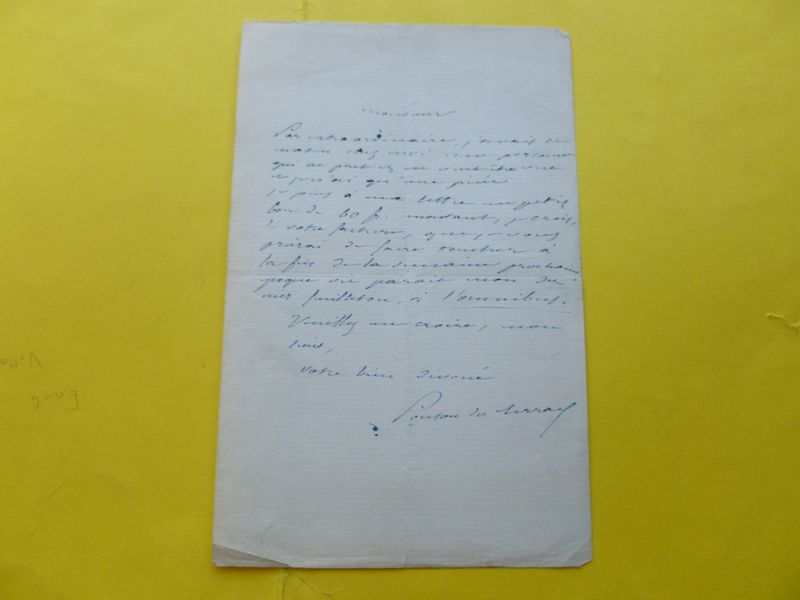 Monsieur
Par extraordinaire, j'avais ce
matin chez moi une personne
qui ne
je n'ai qu'une
je joins à ma lettre un petit
bon de 60 fr. montant, je crois,
de votre facture, que je vous
prierai de faire toucher à
la fin de la semaine prochaine
poque où paraît mon
mier feuilleton, à l'omnibus.
Veuillez me croire, mon
sieur,
votre bien dévoué
Ponson du Terrail